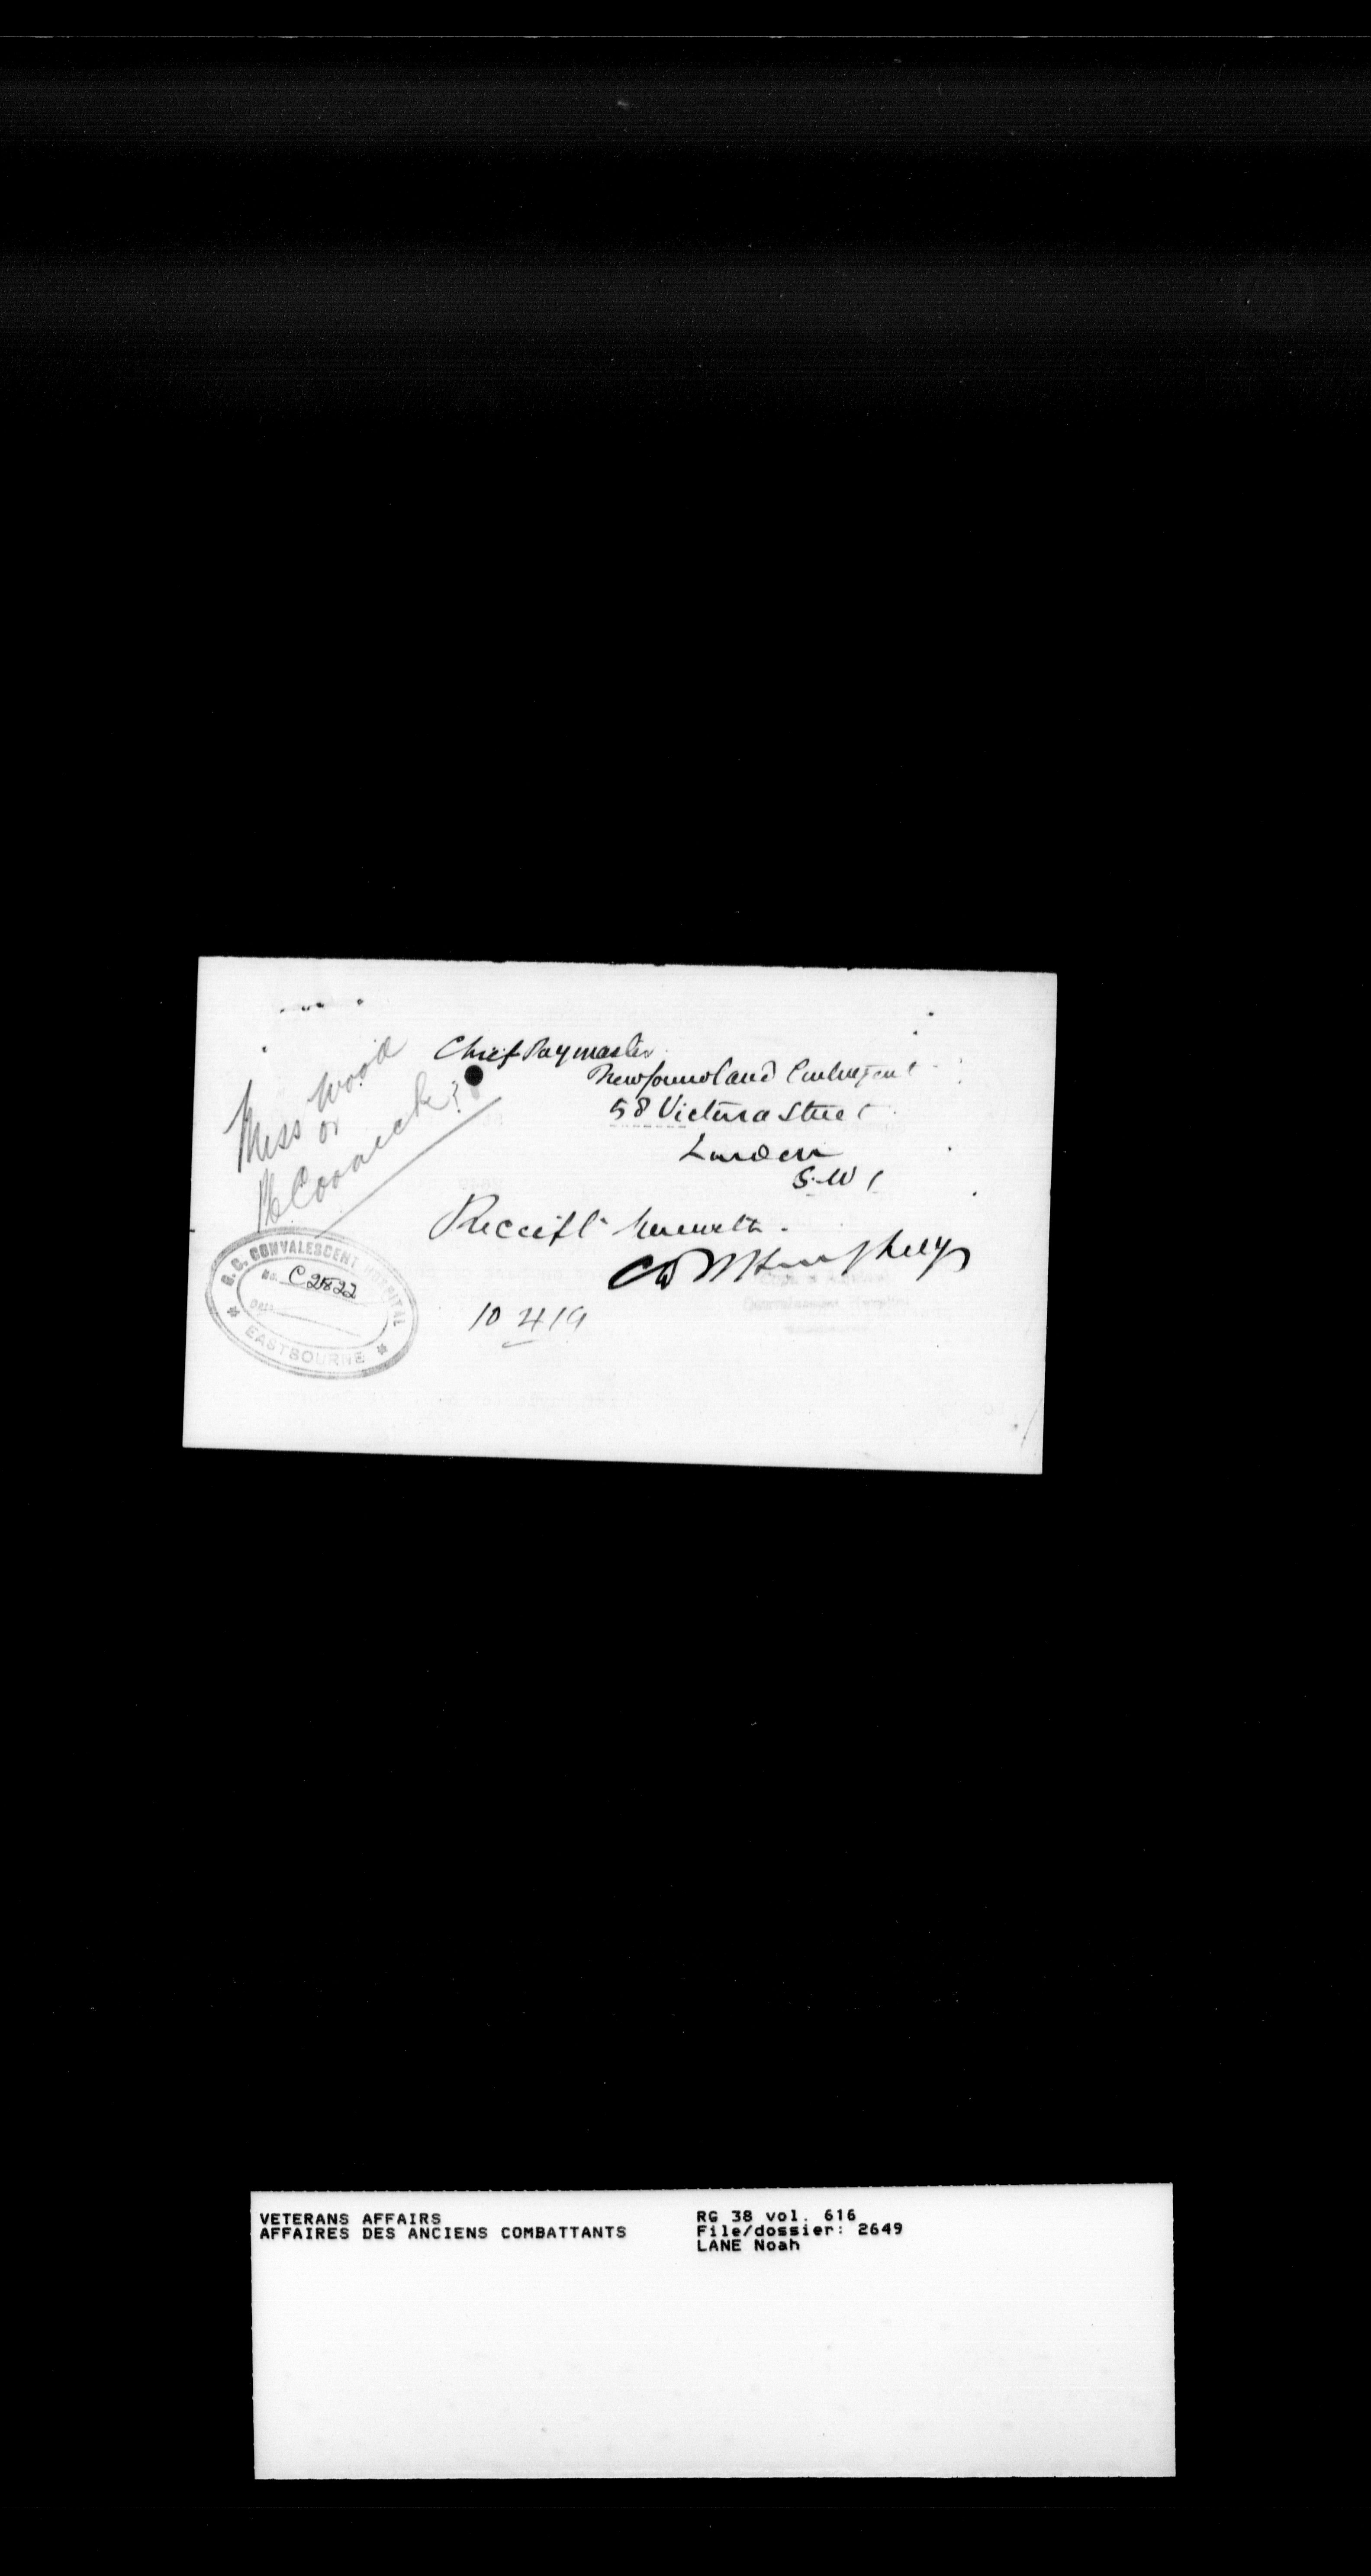 Chief Paymaster
Newfoundland Contingent
58 Victoria Street
London
S.W 1
Miss Wood
or
McCormick?
Receipt herewith.
10 4 19
CONVALESCENT HOSPITAL
No. C2822
Date
EASTBOURNE
VETERANS AFFAIRS
AFFAIRES DES ANCIENS COMBATTANTS
RG 38 vol. 616
File/dossier: 2649
LANE Noah